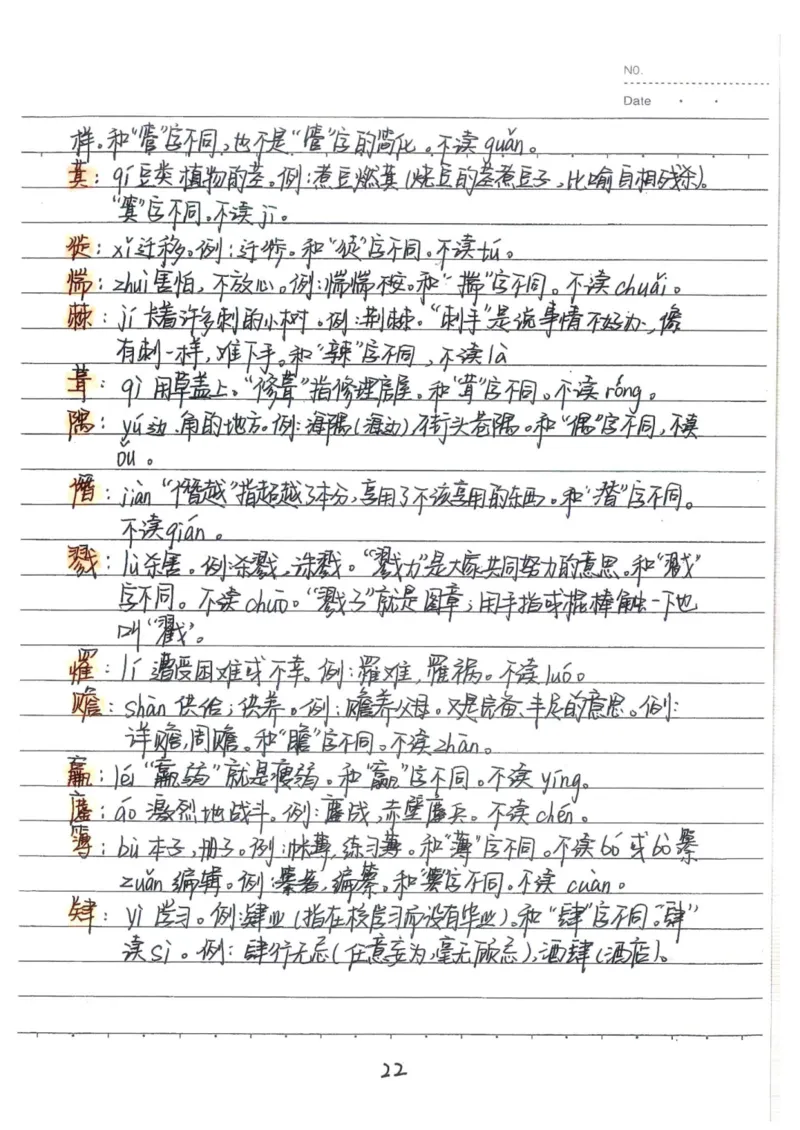 NO.
Date
样。和“管”字不同，也不是“管”字的简化。不读 guǎn。
萁：qí 豆类植物的茎。例：煮豆燃萁（烧豆的茎煮豆子，比喻自相残杀）。
“箕”字不同。不读 jī。
徙：xǐ 迁移。例：迁徙。和“徒”字不同。不读 tú。
惴：zhuì 害怕，不放心。例：惴惴不安。和“揣”字不同。不读 chuǎi。
棘：jí 长着许多刺的小树。例：荆棘。“棘手”是说事情不好办，像
有刺一样，难下手。和“辣”字不同，不读 là
葺：qì 用草盖上。“修葺”指修理房屋。和“茸”字不同。不读 róng。
隅：yú 边、角的地方。例：海隅（海边），街头巷隅。和“偶”字不同，不读
ǒu。
僭：jiàn “僭越”指超越了本分，享用了不该享用的东西。和“潜”字不同。
不读 qián。
戮：lù 杀害。例：杀戮、诛戮。“戮力”是大家共同努力的意思。和“戳”
字不同。不读 chuō。“戳子”就是图章；用手指或棍棒触一下也
叫“戳”。
罹：lí 遭受困难或不幸。例：罹难，罹祸。不读 luó。
赡：shàn 供给；供养。例：赡养父母。又是完备、丰足的意思。例：
详赡，周赡。和“瞻”字不同。不读 zhān。
羸：léi “羸弱”就是瘦弱。和“赢”字不同。不读 yíng。
鏖：áo 激烈地战斗。例：鏖战，赤壁鏖兵。不读 chén。
簿：bù 本子，册子。例：帐簿，练习簿。和“薄”字不同。不读 bó 或 bò 纂
zuǎn 编辑。例：纂者，编纂。和“篡”字不同。不读 cuàn。
肄：yì 学习。例：肄业（指在校学习而没有毕业）。和“肆”字不同。“肆”
读 sì。例：肆行无忌（任意妄为，毫无顾忌），酒肆（酒店）。
22